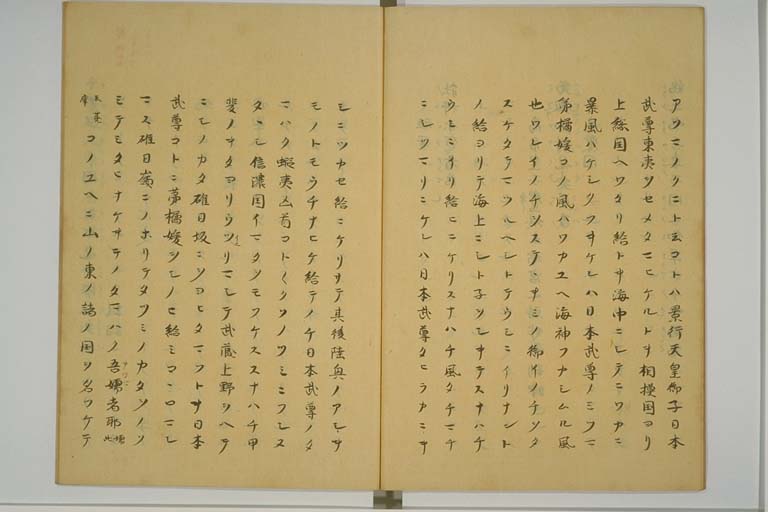 アツマノクニト云コトハ景行天皇御子日本
武尊東夷ヲセメタマヒケルトキ相摸国ヨリ
上総国ヘワタリ給トキ海中ニシテニワカニ
暴風ハケシクフキケレハ日本武尊ノミコニ
弟橘媛コノ風ハワカユヘ海神フナシムル風
也ワレイノチヲステヽキミノ御イノチヲタ
スケタテマツルヘシトテウミニイリナント
ノ給ヨリテ海上ニシト子ヲシキテスナハチ
ウミニイリ給ヒニケリスナハチ風タチマチ
ニシツマリニケレハ日本武尊タヒラカニキ
シニツカセ給ニケリサテ其後陸奥ノアシキ
モノトモウチナヒケ給テノチ日本武尊ノタ
マハク蝦夷凶首コトくクソノツミニフシヌ
タヽシ信濃国イマタシタカハススナハチ甲
斐ノキタヨリウツリマシテ武蔵上野ヲヘテ
ニシノカタ碓日坂ニヲヨヒタマフトキ日本
武尊コトニ弟橘媛ヲシノヒ給ミコヽロマシ
マス碓日嶺ニノホリテタツミノカタヲノソ
ミテミタヒナケキテノタマハク吾嬬者耶
コノユヘニ山ノ東ノ諸ノ国ヲ名ツケテ